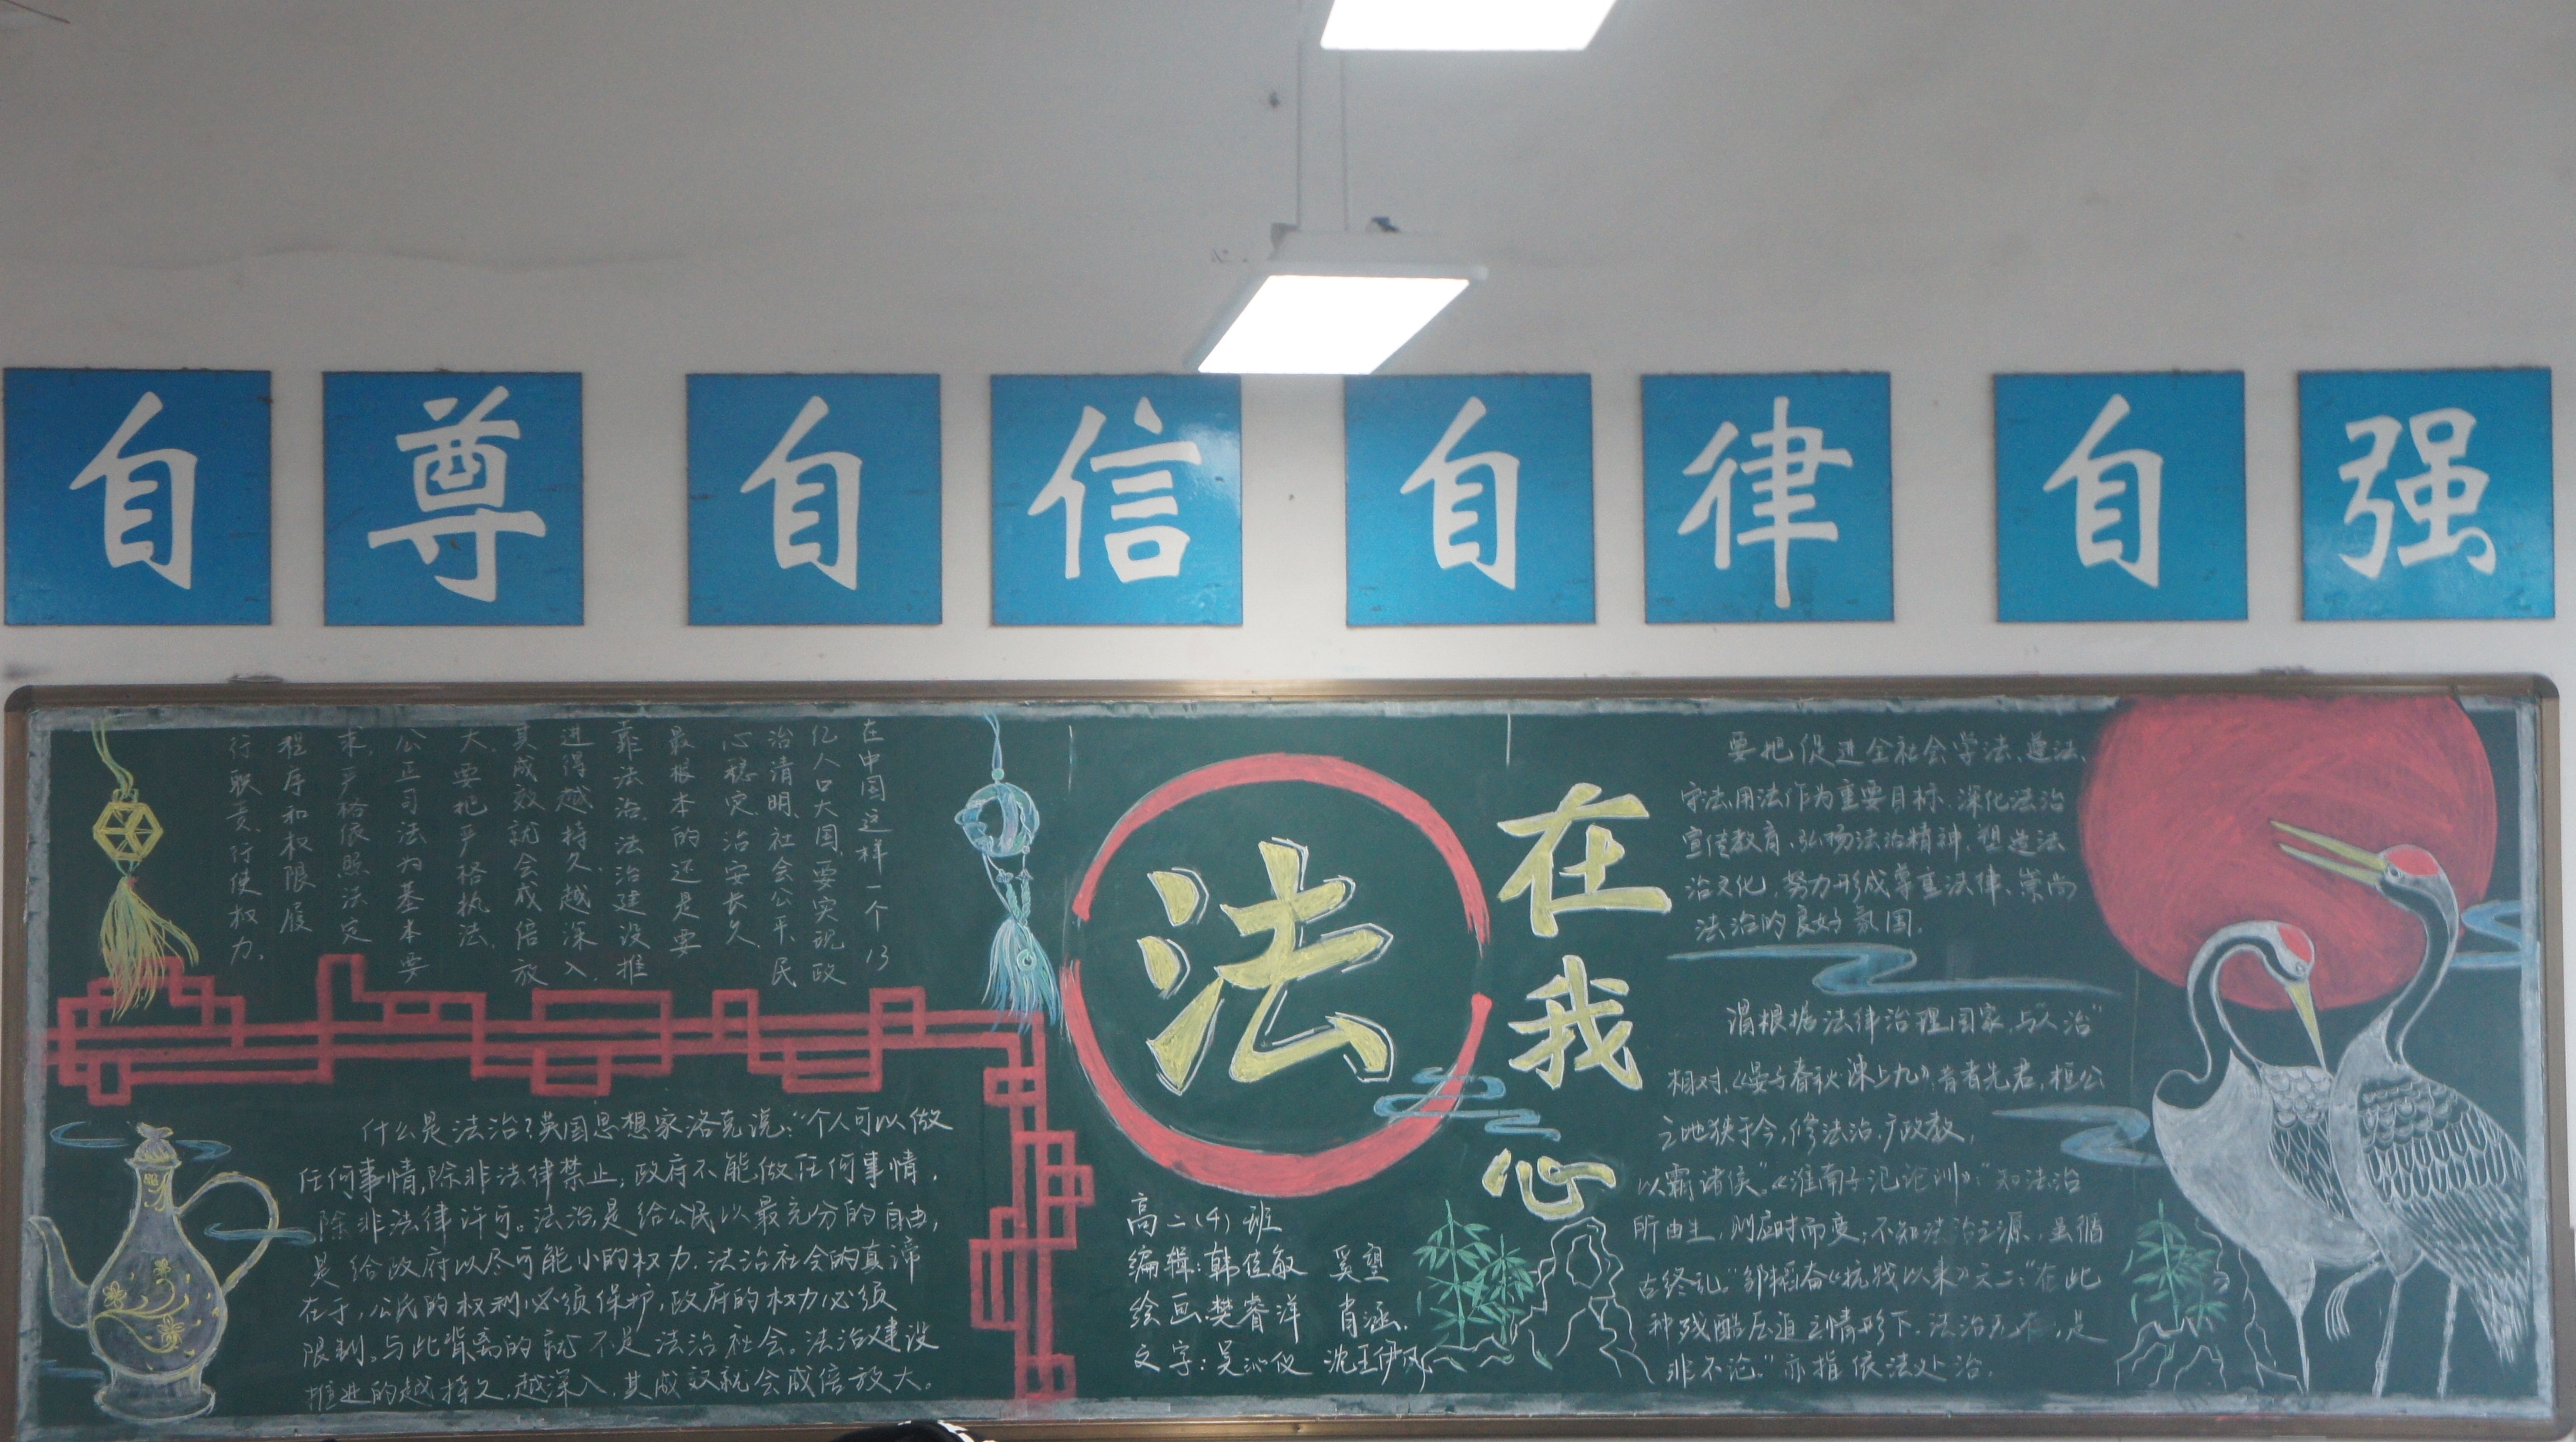 自尊 自信 自律 自强
在中国这样一个13
亿人口大国,要实现政
治清明、社会公平、民
心稳定、治安长久,
最根本的还是要
靠法治,法治建设推
进得越持久、越深入,
其成效就会成倍放
大,要把严格执法、
公正司法为基本要
求,严格依照法定
程序和权限履
行职责、行使权力。
什么是法治?英国思想家洛克说:“个人可以做
任何事情,除非法律禁止;政府不能做任何事情,
除非法律许可。法治,是给公民以最充分的自由,
是给政府以尽可能小的权力.法治社会的真谛
在于,公民的权利必须保护,政府的权力必须
限制,与此背离的就不是法治社会。法治建设
推进的越持久,越深入,其成效就会成倍放大。
法
在我心
高二(4)班
编辑:韩佳敏 奚望
绘画:樊睿洋 肖涵.
文字:吴沁仪 沈王伊凡
要把促进全社会学法、遵法、
守法、用法作为重要目标、深化法治
宣传教育、弘扬法治精神,塑造法
治文化,努力形成尊重法律、崇尚
法治的良好氛围.
谓根据法律治理国家,与“人治”
相对.《晏子春秋·谏上九》:昔者先君,桓公
之地狭于今,修法治,广政教,
以霸诸侯”.《淮南子·氾论训》:“知法治
所由生,则应时而变;不知法治之源,虽循
古终乱.”邹韬奋《抗战以来》六二:“在此
种残酷压迫之情形下,法治无存,是
非不论.”亦指依法处治.